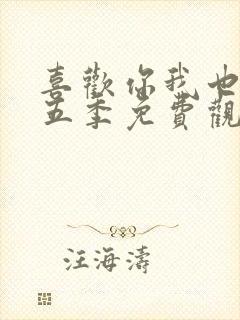 喜歡你我也
五季免費觀
汪海濤